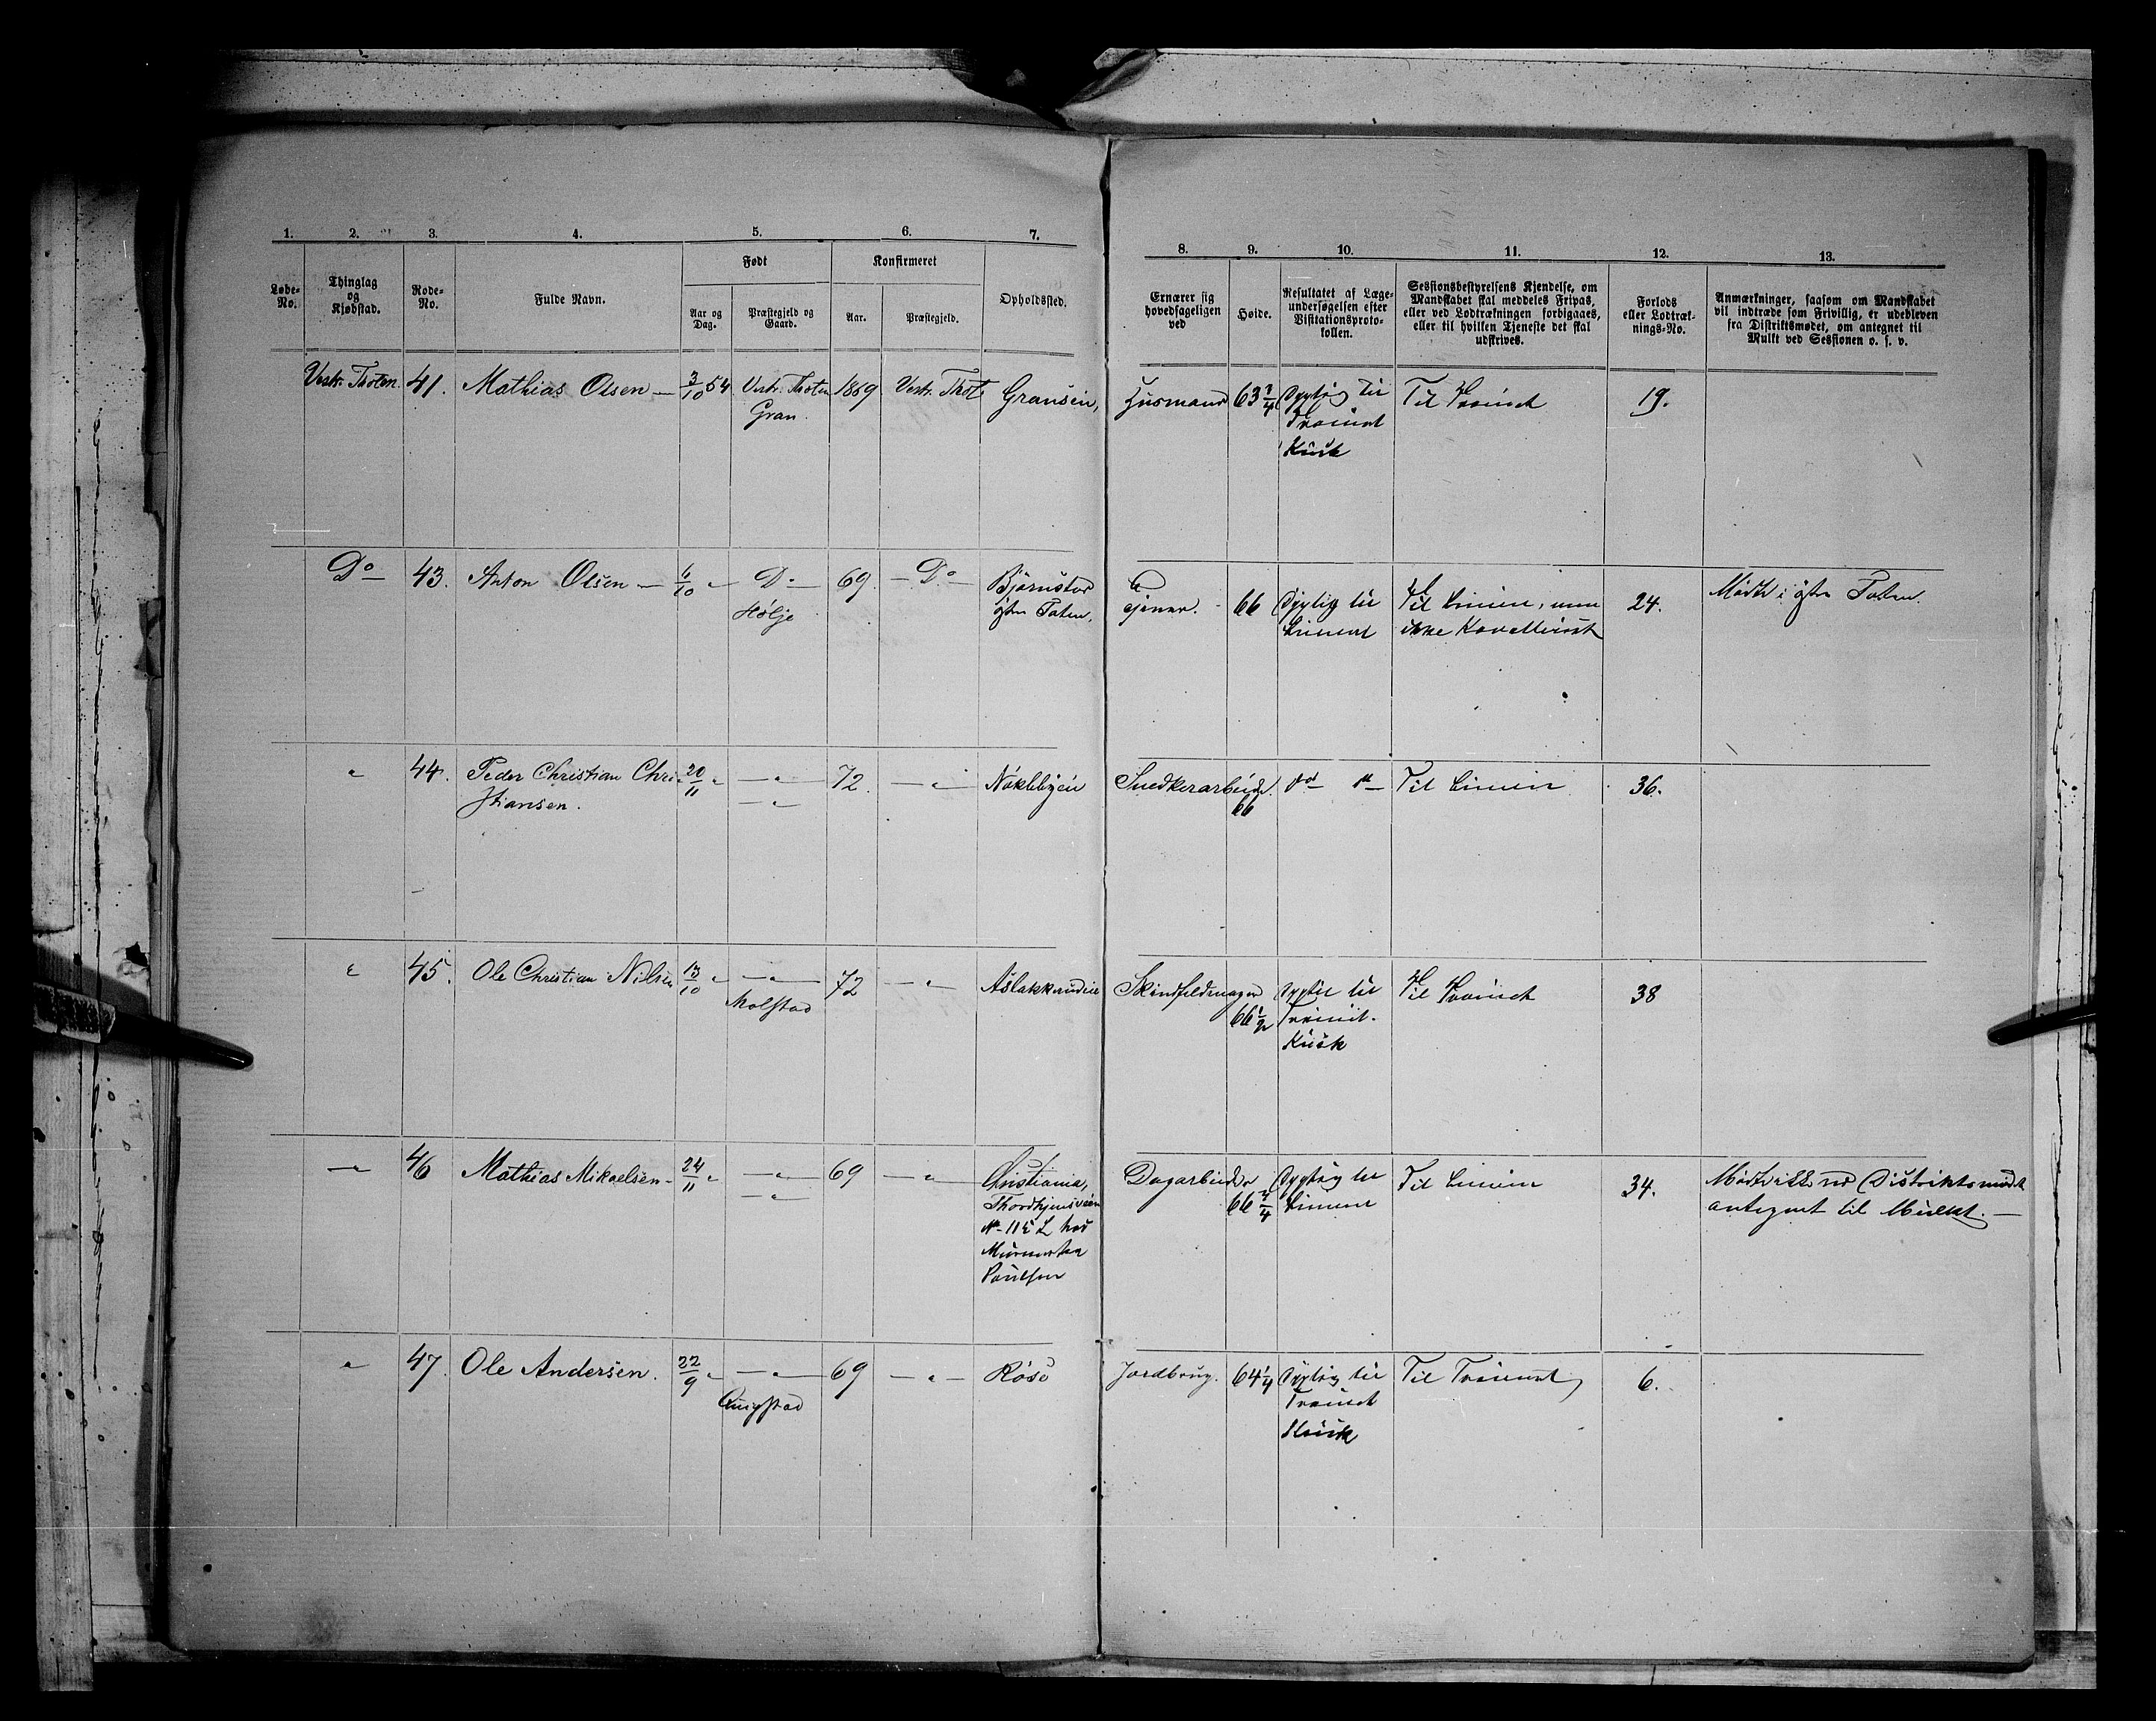 1. 2. 3. 4. 5. 6. 7.
Løbe-No.
Thinglag og Kjøbstad.
Rode-No.
Fulde Navn.
Født
Aar og Dag.
Præstegjeld og Gaard.
Konfirmeret
Aar.
Præstegjeld.
Opholdssted.
8. 9. 10. 11. 12. 13.
Ernærer sig hovedsageligen ved
Høide.
Resultatet af Læge-undersøgelsen efter Visitationsproto-kollen.
Sessionsbestyrelsens Kjendelse, om Mandskabet skal meddeles Fripas, eller ved Lodtrækningen forbigaaes, eller til hvilken Tjeneste det skal udskrives.
Forlods eller Lodtræk-nings-No.
Anmærkninger, saasom om Mandskabet vil indtræde som Frivillig, er udebleven fra Distriktsmødet, om antegnet til Mulkt ved Sessionen o. s. v.
Vestr. Thoten. 41. Mathias Olsen — 3/10 54 Vestr. Thoten 1869 Vestr. Thot. Gransein, Husmand 63 3/4 Dygtig til Til Trainet 19.
Gran Trainet
Kusk
Do 43. Anton Olsen — 6/10 " Do 69. Do Bjørnstad Tjener. 66 Dygtig til Til Linien, men 24. Mødte i østre Toten.
Hølje østre Toten. Linien ikke Kavalleriet
" 44. Peder Christian Chri- 20/11 " — " — 72. — " Nøklebyein Snedkerarbeide. do do Til Linien 36.
stiansen. — " 66
" 45. Ole Christian Nilsen 13/10 " — " — 72 — " Aslakkrudeie Skindfeldmager Dygtig til Til Trainet 38
Molstad 66 1/2 Trainet
Kusk
— " 46 Mathias Mikaelsen 24/11 " — " 69 — " Christiania, Dagarbeider Dygtig til Til Linien 34. Mødte ikke ved Distriktsmødet
— " Throndhjemsveien 66 3/4 Linien antegnet til Mulkt. —
No 11 hos
Murmester
Poulsen
" 47. Ole Andersen. 22/9 " — " — 69 — " — Røse Jordbrug. 64 1/4 Dygtig til Til Trainet 6.
Trainet
Kusk